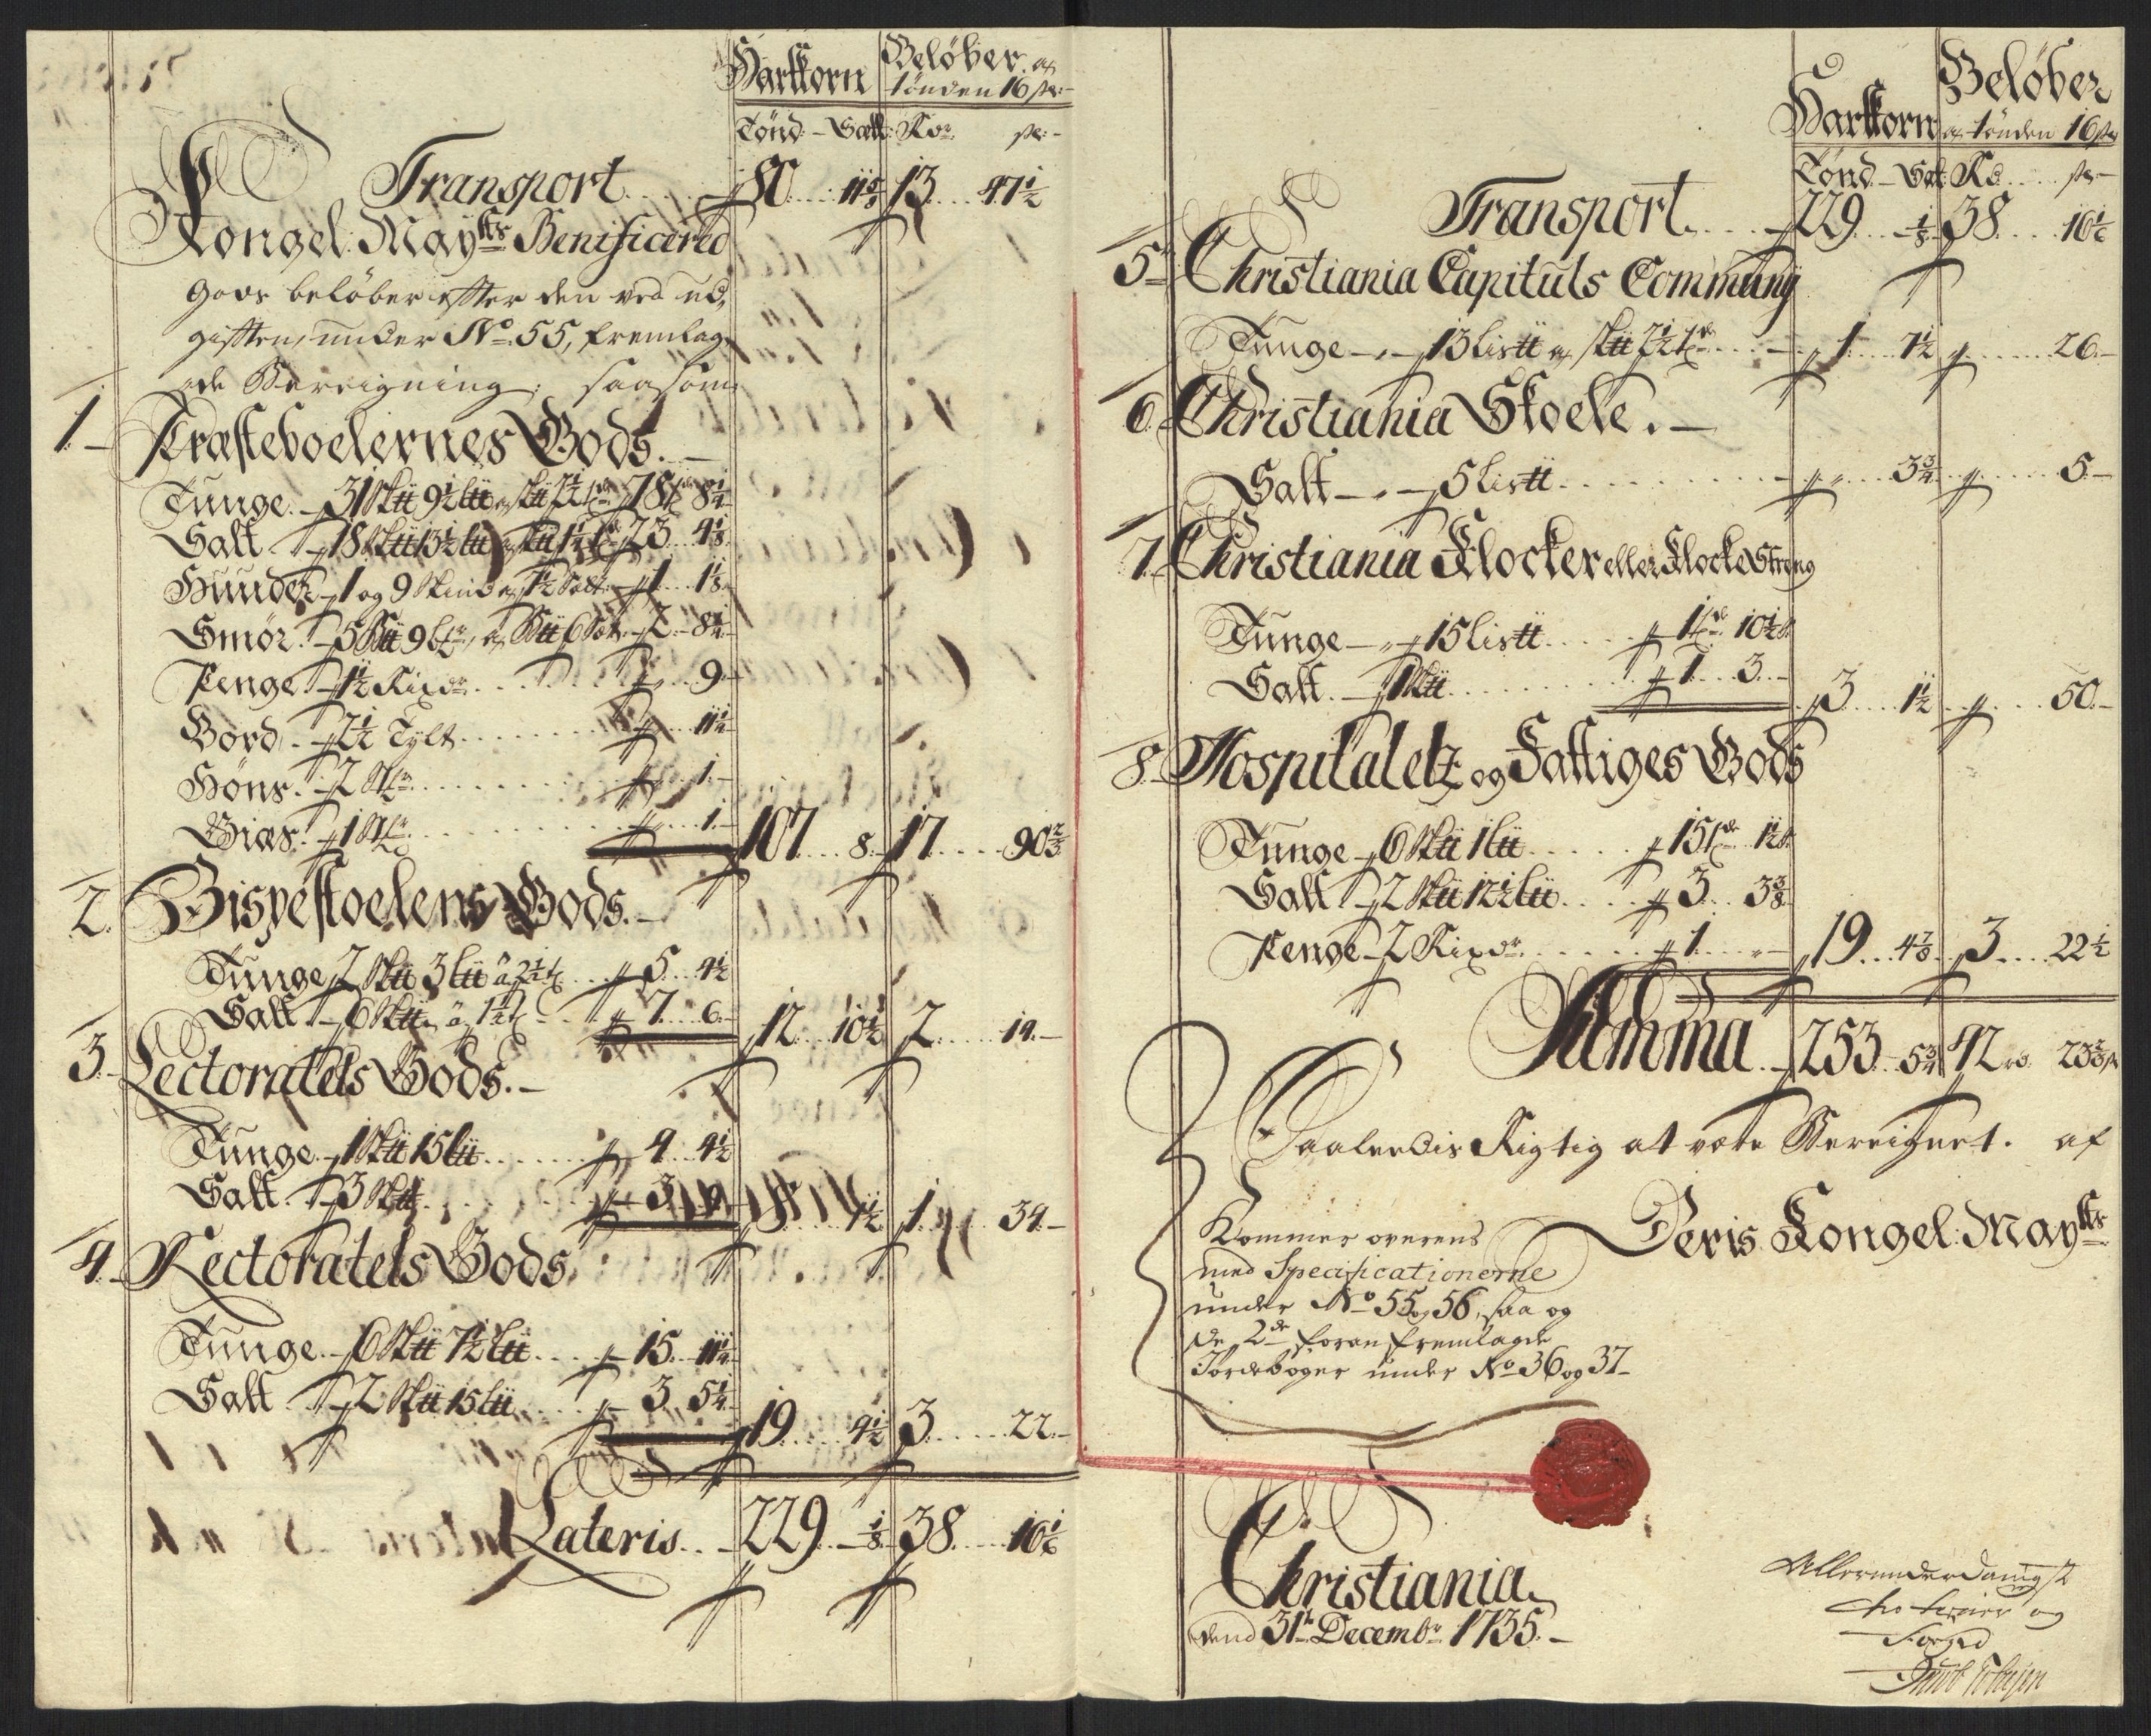 Hartkorn Beløber a
tønden 16 sk:
Tønd: – Sætt: Rdr. sk: –
Transport 80 11 5/8 13 47 1/2
Kongel: Mayts Benificered
Gods beløber efter den ved ud,
giften, under No. 55, fremlag,
de Bereigning, saasom
1. – Præsteboelernes Gods. –
Tunge. – 31 Sk℔ 9 1/2 L℔ a Sk℔ 2 1/2 tr 78 tr 8 1/4
Salt – 18 Sk℔ 13 1/2 L℔ a Sk℔ 1 1/4 tr 23 4 1/8
Huuder – 1 og 9 Skind a 1 1/2 Sæt: 1 1 1/8
Smør. – 5 B℔ 9 a B℔ 6 Sæt. 2 – 8 1/4
Penge – 1 1/2 Rixdr 9 –
Bord. – 2 1/2 Tylt 11 1/4
Høns. – 2 St 1. –
Bias. – 1 St 1. – 107 8. – 17 90 2/3
2. Bispestoelens Gods. –
Tunge 2 Sk℔ 3 L℔ a 2 1/2 t 5 4 1/2
Salt – 6 Sk℔ a 1 1/4 t 7 6. – 12 10 1/2 2 14. –
3. – Lectoratets Gods. –
Tunge – 1 Sk℔ 15 L℔ 4 4 1/2
Salt – 3 Sk℔ 3 9 8 1 1/2 1 34. –
4. – Rectoratets Gods
Tunge. – 6 Sk℔ 7 1/2 L℔ 15 11 1/4
Salt – 2 Sk℔ 15 L℔ 3 5 1/4 19 4 1/2 3 22. –
Lateris 229 – 1/8 38 10 1/6
Hartkorn Beløber
a tønden 16 sk
Tønd – Sæt: Rd sk –
Transport 229 – 1/8 38 10 1/6
5. Christiania Capituls Communj
Tunge – 13 Lis℔ a Sk℔ 2 1/2 tr 1 7 1/2 26. –
6. Christiania Skoele. –
Salt – 5 Lis℔ 3 3/4 5. –
7. Christiania Klocker eller Klocke Streng
Tunge – 15 Lis℔ 1 tr 10 1/2
Salt. – 1 Sk℔ 1 3. – 3 1 1/2 50. –
8. Hospitaletz og Fattiges Gods
Tunge – 6 Sk℔ 1 L℔ 15 tr 1 1/2
Salt – 2 Sk℔ 12 1/2 L℔ 3 3 3/8
Penge – 2 Rixdr 1 – 19 4 7/8 3 22 1/2
Summa 253 5 3/4 42 rd 23 2/3 s
Saaledis Rigtig at være Bereignet. af
Deris Kongel: Mayts
Kommer overens
med Specificationerne
under No 55 og 56, saa og
de 2de foran fremlagde
Jordebøger under No 36 og 37 –
Christiania
dend 31te Decembr 1735. –
Allerunderdanigst
og
Foged